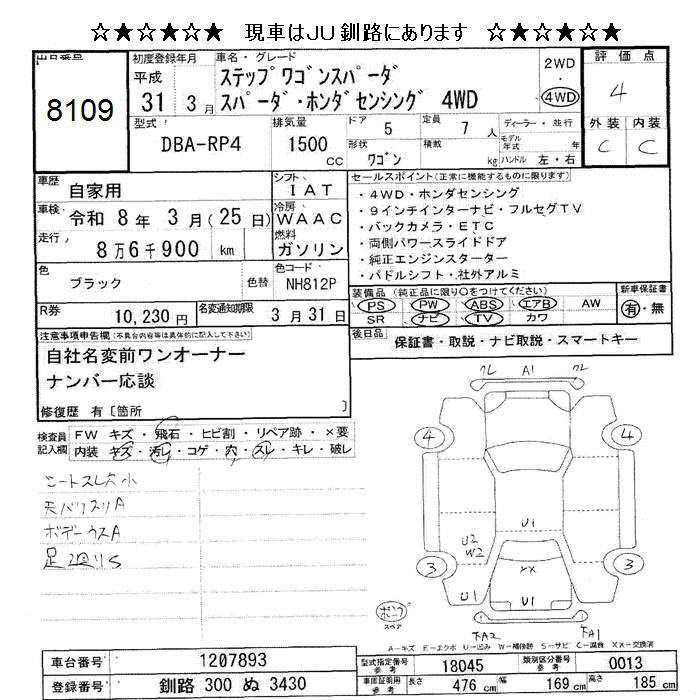 ☆★☆★☆★ 現車はJU釧路にあります ☆★☆★☆★
出品番号
8109
初度登録年月
平成
31 3月
車名・グレード
ステップワゴンスパーダ
スパーダ・ホンダセンシング 4WD
2WD
・
4WD
評価点
4
外装 内装
C C
型式
DBA-RP4
排気量
1500
cc
ドア
5
定員
7人
ディーラー・並行
形状
ワゴン
積載
kg
モデル年式 年
ハンドル 左・右
車歴
自家用
シフト
IAT
車検
令和 8年 3月(25日)
冷房
WAAC
走行
8万6千900 km
燃料
ガソリン
色
ブラック
色替
色コード
NH812P
R券
10,230円
名変通知期限
3月31日
セールスポイント(正常に機能するものに限ります)
・4WD・ホンダセンシング
・9インチインターナビ・フルセグTV
・バックカメラ・ETC
・両側パワースライドドア
・純正エンジンスターター
・パドルシフト・社外アルミ
装備品(純正品に限り○をつけてください)
PS PW ABS エアB AW
SR ナビ TV カワ
新車保証書
有・無
後日品
保証書・取説・ナビ取説・スマートキー
注意事項申告欄(不具合内容等は具体的に記入して下さい)
自社名変前ワンオーナー
ナンバー応談
修復歴 有〔箇所 〕
検査員記入欄
FW キズ・飛石・ヒビ割・リペア跡・×要
内装 キズ・汚レ・コゲ・穴・スレ・キレ・破レ
シートスレ大小
天バリスリA
ボデーウスA
足廻りS
クレ A1 クレ
4 4
U1
U2
W2
3 3
XX
U1 U1
下A2 下A1
ボンフ
スペア
A-キズ E-エクボ U-凹み W-補修跡 S-サビ C-腐食 XX-交換済
車台番号
1207893
登録番号
釧路 300 ぬ 3430
型式指定番号
参考
18045
類別区分番号
参考
0013
車庫証明用
参考
長さ
476 cm
幅
169 cm
高さ
185 cm